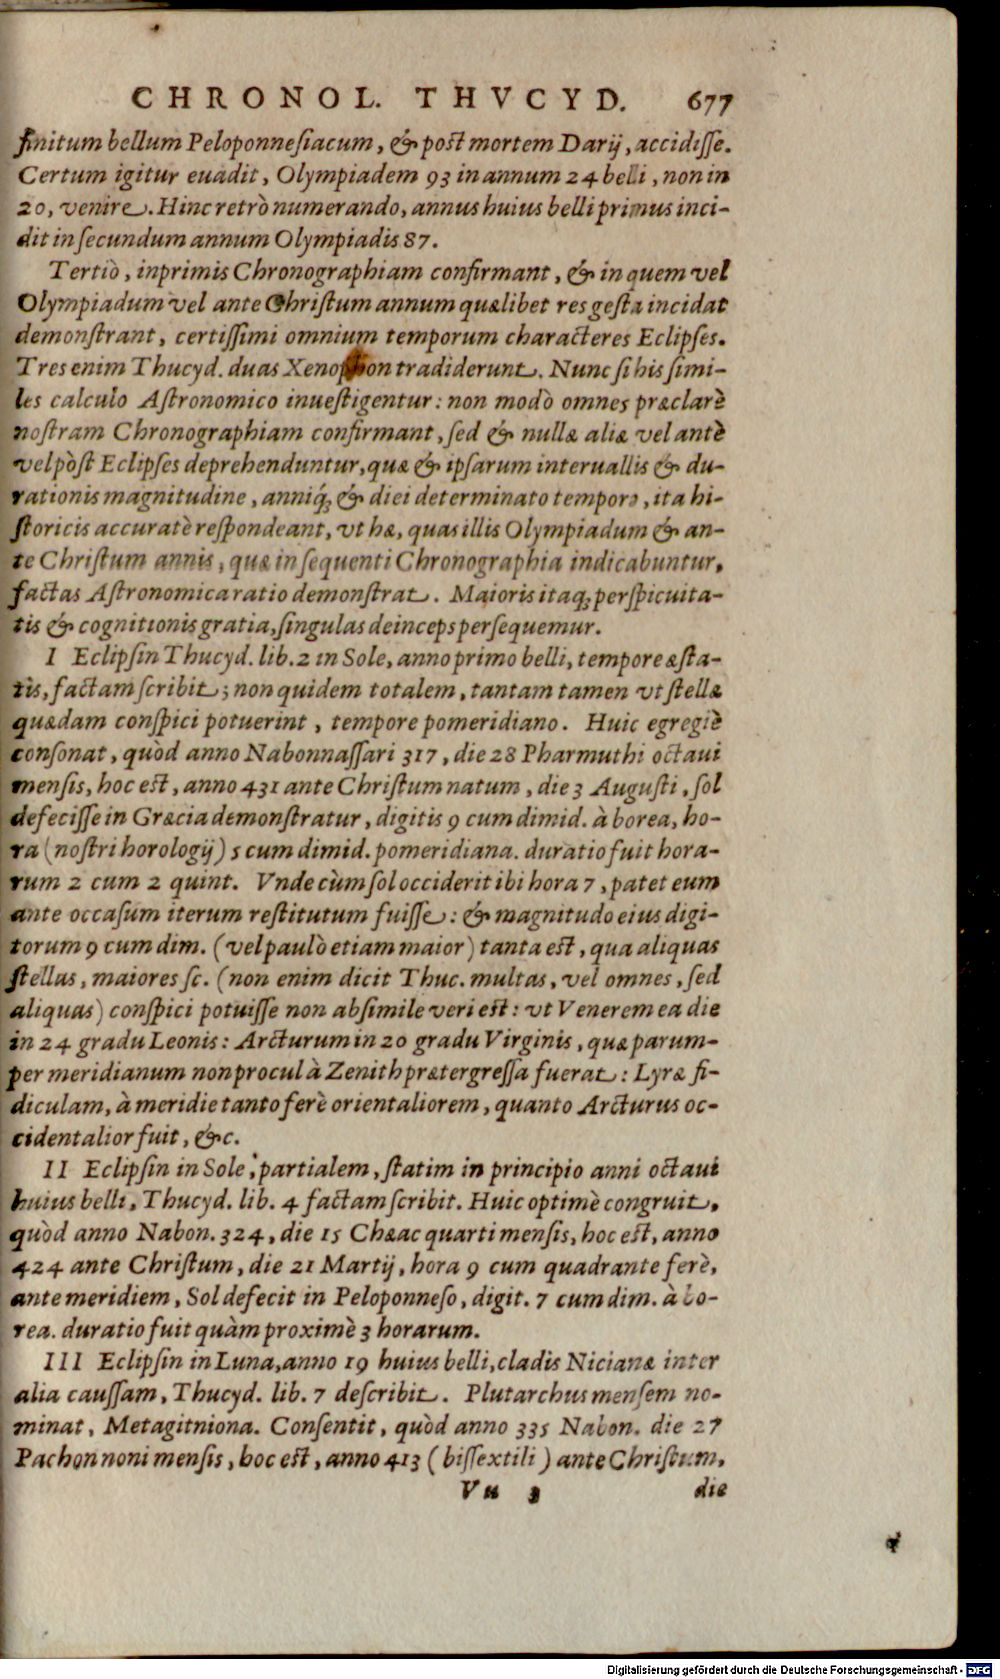 CHRONOL. THVCYD. 677
finitum bellum Peloponnesiacum, & post mortem Darij, accidisse.
Certum igitur euadit, Olympiadem 93 in annum 24 belli, non in
20, venire. Hinc retrò numerando, annus huius belli primus inci-
dit in secundum annum Olympiadis 87.
Tertiò, inprimis Chronographiam confirmant, & in quem vel
Olympiadum vel ante Christum annum quælibet res gesta incidat
demonstrant, certissimi omnium temporum characteres Eclipses.
Tres enim Thucyd. duas Xenophon tradiderunt. Nunc si his simi-
les calculo Astronomico inuestigentur: non modò omnes præclarè
nostram Chronographiam confirmant, sed & nullæ aliæ vel antè
vel pòst Eclipses deprehenduntur, quæ & ipsarum interuallis & du-
rationis magnitudine, anniq́; & diei determinato tempore, ita hi-
storicis accuratè respondeant, vt hæ, quas illis Olympiadum & an-
te Christum annis, quæ in sequenti Chronographia indicabuntur,
factas Astronomica ratio demonstrat. Maioris itaq; perspicuita-
tis & cognitionis gratia, singulas deinceps persequemur.
I Eclipsin Thucyd. lib. 2 in Sole, anno primo belli, tempore æsta-
tis, factam scribit; non quidem totalem, tantam tamen vt stellæ
quædam conspici potuerint, tempore pomeridiano. Huic egregiè
consonat, quòd anno Nabonnassari 317, die 28 Pharmuthi octaui
mensis, hoc est, anno 431 ante Christum natum, die 3 Augusti, sol
defecisse in Græcia demonstratur, digitis 9 cum dimid. à borea, ho-
ra (nostri horologij) 5 cum dimid. pomeridiana. duratio fuit hora-
rum 2 cum 2 quint. Vnde cùm sol occiderit ibi hora 7, patet eum
ante occasum iterum restitutum fuisse: & magnitudo eius digi-
torum 9 cum dim. (vel paulò etiam maior) tanta est, qua aliquas
stellas, maiores sc. (non enim dicit Thuc. multas, vel omnes, sed
aliquas) conspici potuisse non absimile veri est: vt Venerem ea die
in 24 gradu Leonis: Arcturum in 20 gradu Virginis, quæ parum-
per meridianum non procul à Zenith prætergressa fuerat: Lyræ fi-
diculam, à meridie tanto ferè orientaliorem, quanto Arcturus oc-
cidentalior fuit, &c.
II Eclipsin in Sole, partialem, statim in principio anni octaui
huius belli, Thucyd. lib. 4 factam scribit. Huic optimè congruit,
quòd anno Nabon. 324, die 15 Chæac quarti mensis, hoc est, anno
424 ante Christum, die 21 Martij, hora 9 cum quadrante ferè,
ante meridiem, Sol defecit in Peloponneso, digit. 7 cum dim. à bo-
rea. duratio fuit quàm proximè 3 horarum.
III Eclipsin in Luna, anno 19 huius belli, cladis Nicianæ inter
alia caussam, Thucyd. lib. 7 describit. Plutarchus mensem no-
minat, Metagitniona. Consentit, quòd anno 335 Nabon. die 27
Pachon noni mensis, hoc est, anno 413 (bissextili) ante Christum,
Vu 3 die
Digitalisierung gefördert durch die Deutsche Forschungsgemeinschaft - DFG